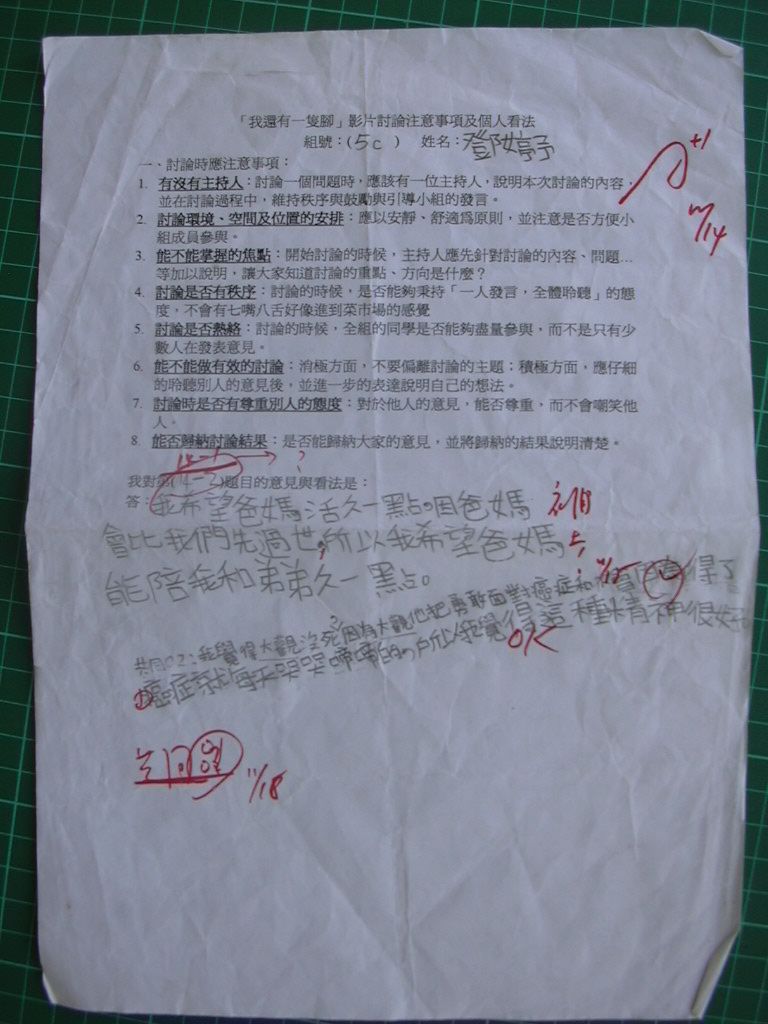 「我還有一隻腳」影片討論注意事項及個人看法
組號：(5c) 姓名：鄧婷予
一、討論時應注意事項：
+1
1. 有沒有主持人：討論一個問題時，應該有一位主持人，說明本次討論的內容，
並在討論過程中，維持秩序與鼓勵與引導小組的發言。
2. 討論環境、空間及位置的安排：應以安靜、舒適為原則，並注意是否方便小
組成員參與。
3. 能不能掌握的焦點：開始討論的時候，主持人應先針對討論的內容、問題…
等加以說明，讓大家知道討論的重點、方向是什麼？
4. 討論是否有秩序：討論的時候，是否能夠秉持「一人發言，全體聆聽」的態
度，不會有七嘴八舌好像進到菜市場的感覺
5. 討論是否熱絡：討論的時候，全組的同學是否能夠盡量參與，而不是只有少
數人在發表意見。
6. 能不能做有效的討論：消極方面，不要偏離討論的主題：積極方面，應仔細
的聆聽別人的意見後，並進一步的表達說明自己的想法。
7. 討論時是否有尊重別人的態度：對於他人的意見，能否尊重，而不會嘲笑他
人。
8. 能否歸納討論結果：是否能歸納大家的意見，並將歸納的結果說明清楚。
14-1 → ?
我對第(14-2)題目的意見與看法是：
答：我希望爸媽活久一點。因爸媽
會比我們先過世，所以我希望爸媽
能陪我和弟弟久一點。
我覺得大觀沒死因為大觀他把勇敢面對癌症和
得了
癌症就每天哭哭啼啼的，所以我覺得這種精神很好
OK
共同
11/18